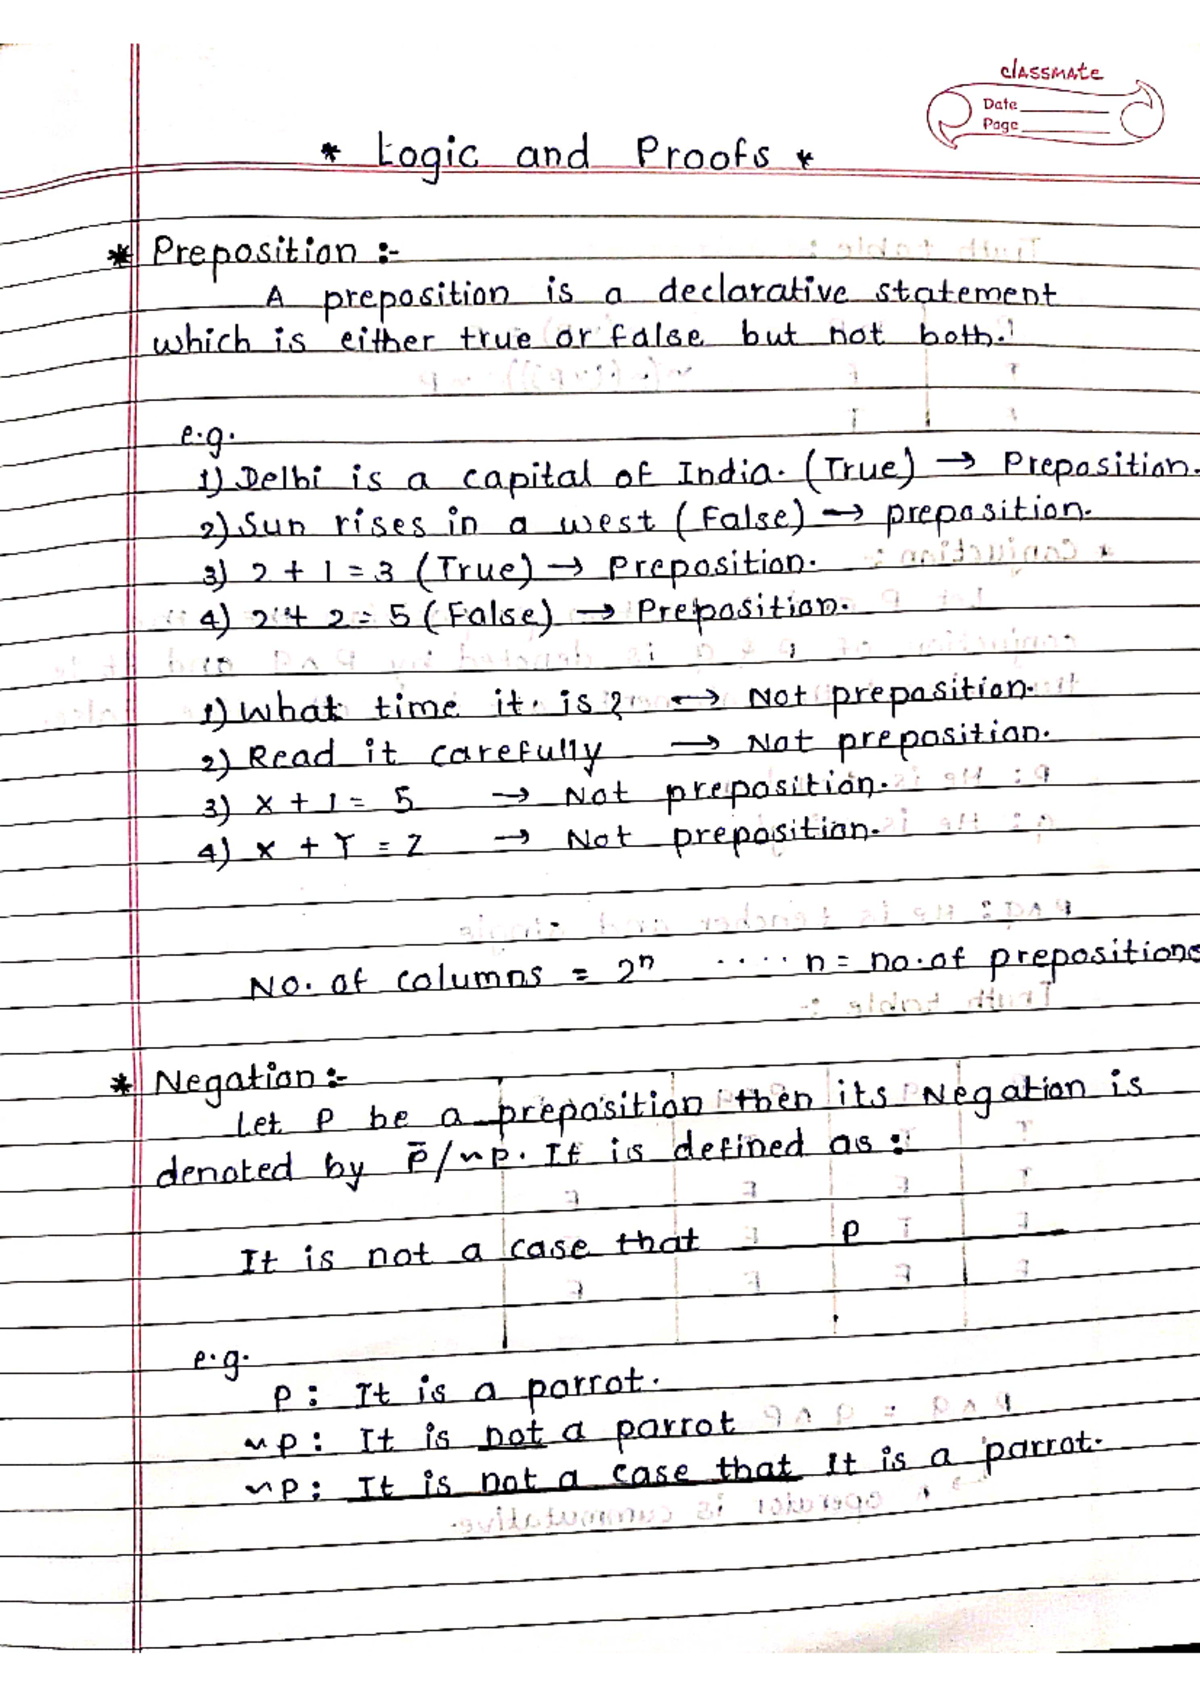 classmate
Date
Page
* Logic and Proofs *
* Preposition :-
A preposition is a declarative statement
which is either true or false but not both.
e.g.
1) Delhi is a capital of India. (True) → Preposition.
2) Sun rises in a west (False) → preposition.
3) 2 + 1 = 3 (True) → Preposition.
4) 2 + 2 = 5 (False) → Preposition.
1) What time it is ? → Not preposition.
2) Read it carefully → Not preposition.
3) x + 1 = 5 → Not preposition.
4) x + Y = Z → Not preposition.
No. of columns = 2ⁿ .... n = no. of prepositions
* Negation :-
Let P be a preposition then its Negation is
denoted by p̄ / ~p. It is defined as :
It is not a case that p
e.g.
p : It is a parrot.
~p : It is not a parrot
~p : It is not a case that it is a parrot.